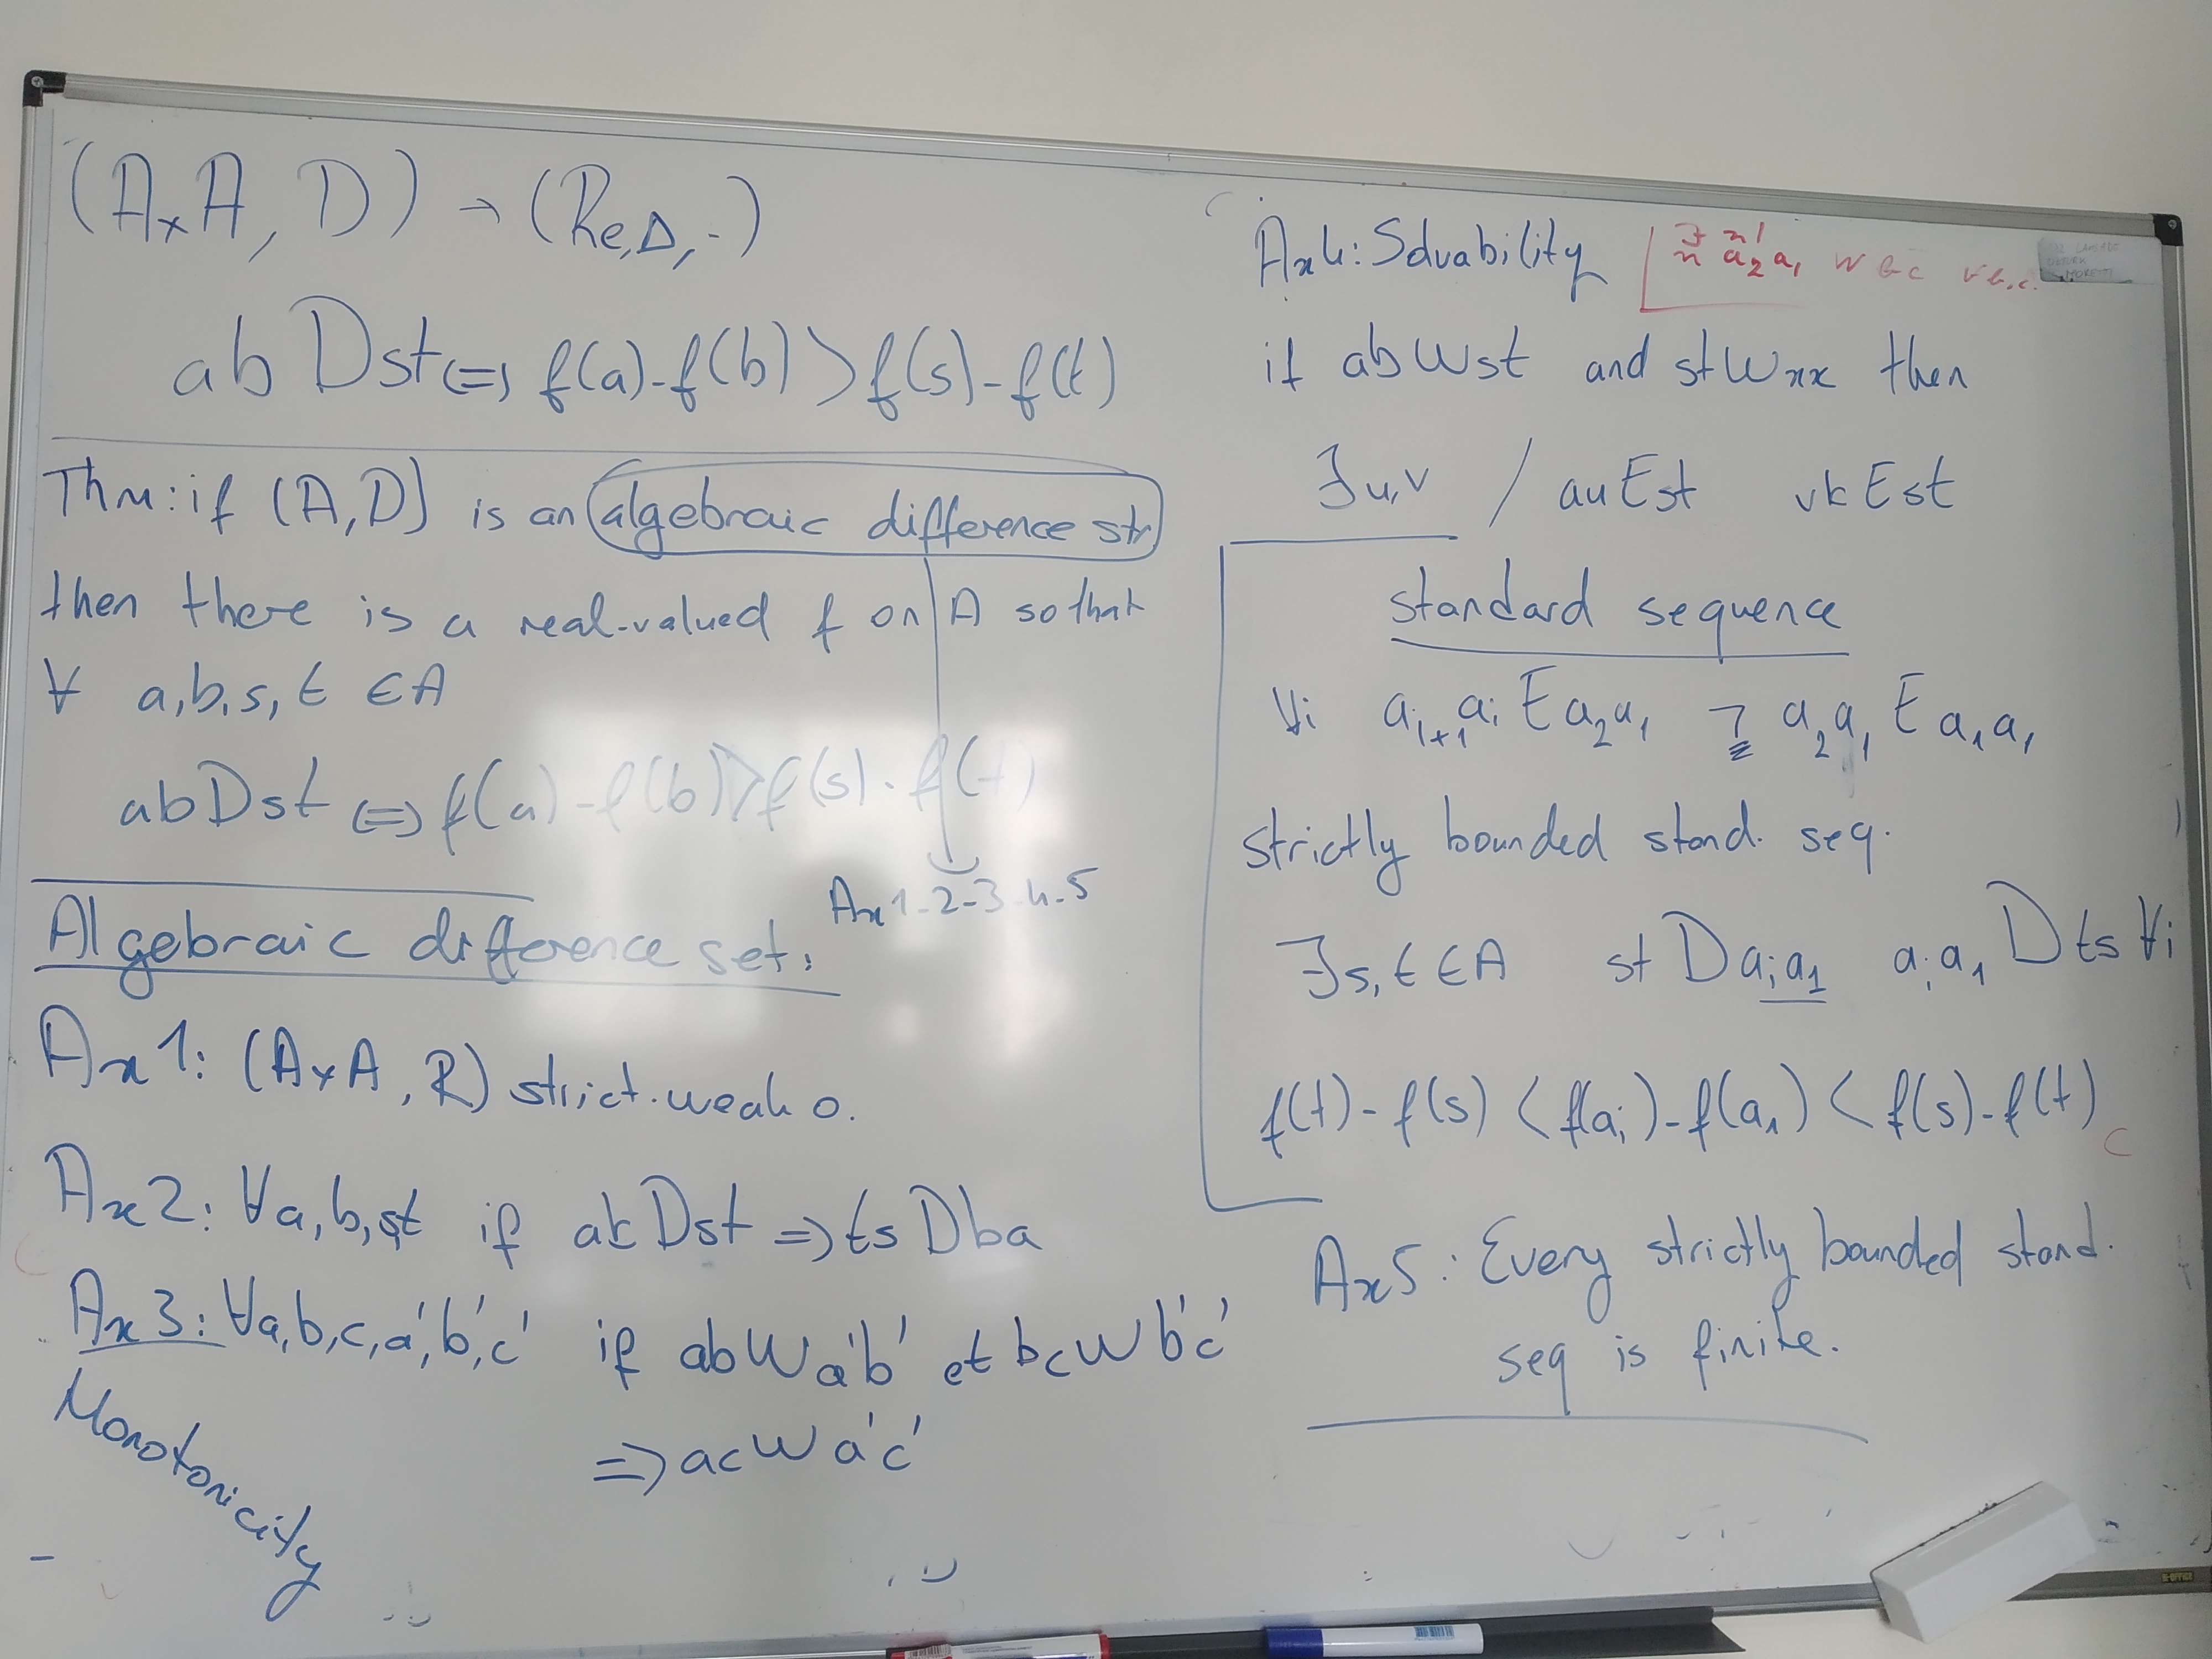 (A×A, D) → (Re, Δ, -)
ab Dst ⇔ f(a)-f(b) > f(s)-f(t)
Thm: if (A,D) is an algebraic difference str.
then there is a real-valued f on A so that
∀ a,b,s,t ∈A
abDst ⇔ f(a)-f(b)>f(s)-f(t)
Ax 1-2-3-4-5
Algebraic difference set:
Ax 1: (A×A, R) strict. weak o.
Ax 2: ∀a,b,s,t if ab Dst ⇒ ts Dba
Ax 3: ∀a,b,c,a',b',c' if abWa'b' et bcWb'c'
⇒ acWa'c'
Monotonicity
Ax 4: Solvability
a₂a₁ W bc ∀b,c.
if abWst and stWxx then
∃u,v / auEst vbEst
standard sequence
∀i aᵢ₊₁aᵢ E a₂a₁ ⌉ a₂a₁ E a₁a₁
strictly bounded stand. seq.
∃s,t ∈A st D aᵢa₁ aᵢa₁ D ts ∀i
f(t)-f(s) < f(aᵢ)-f(a₁) < f(s)-f(t)
Ax 5: Every strictly bounded stand.
seq is finite.